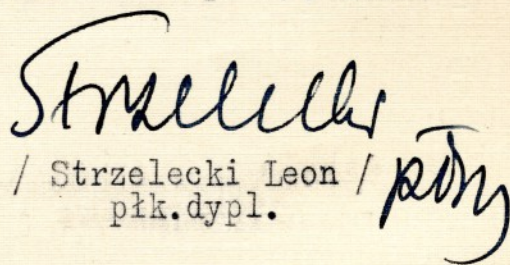 Strzelecki
/ Strzelecki Leon /
płk.dypl.